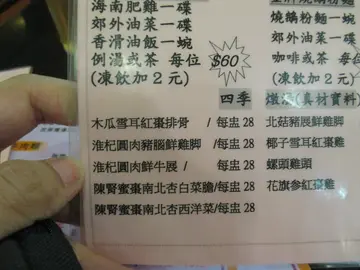 海南肥雞一碟
郊外油菜一碟
香滑油飯一碗
例湯或茶 每位
(凍飲加2元)
$60
燒鵝粉麵一碗
郊外油菜一碟
咖啡或茶 每
(凍飲加2元)
四季 燉 (真材實料)
木瓜雪耳紅棗排骨 /每盅 28
淮杞圓肉豬腦鮮雞脚 /每盅 28
淮杞圓肉鮮牛展 /每盅 28
陳腎蜜棗南北杏白菜膽/每盅 28
陳腎蜜棗南北杏西洋菜/每盅 28
北菇豬展鮮雞脚
椰子雪耳紅棗雞
螺頭雞頭
花旗參紅棗雞